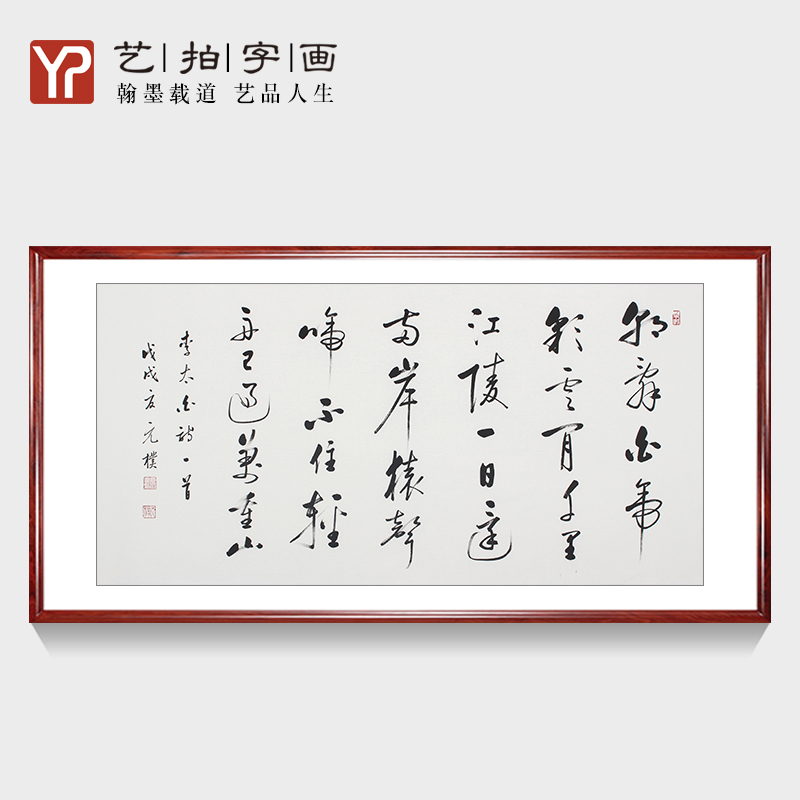 YP
艺|拍|字|画
翰墨载道 艺品人生
朝辭白帝
彩雲間千里
江陵一日還
兩岸猿聲
啼不住輕
舟已過萬重山
李太白詩一首
戊戌夏元樸